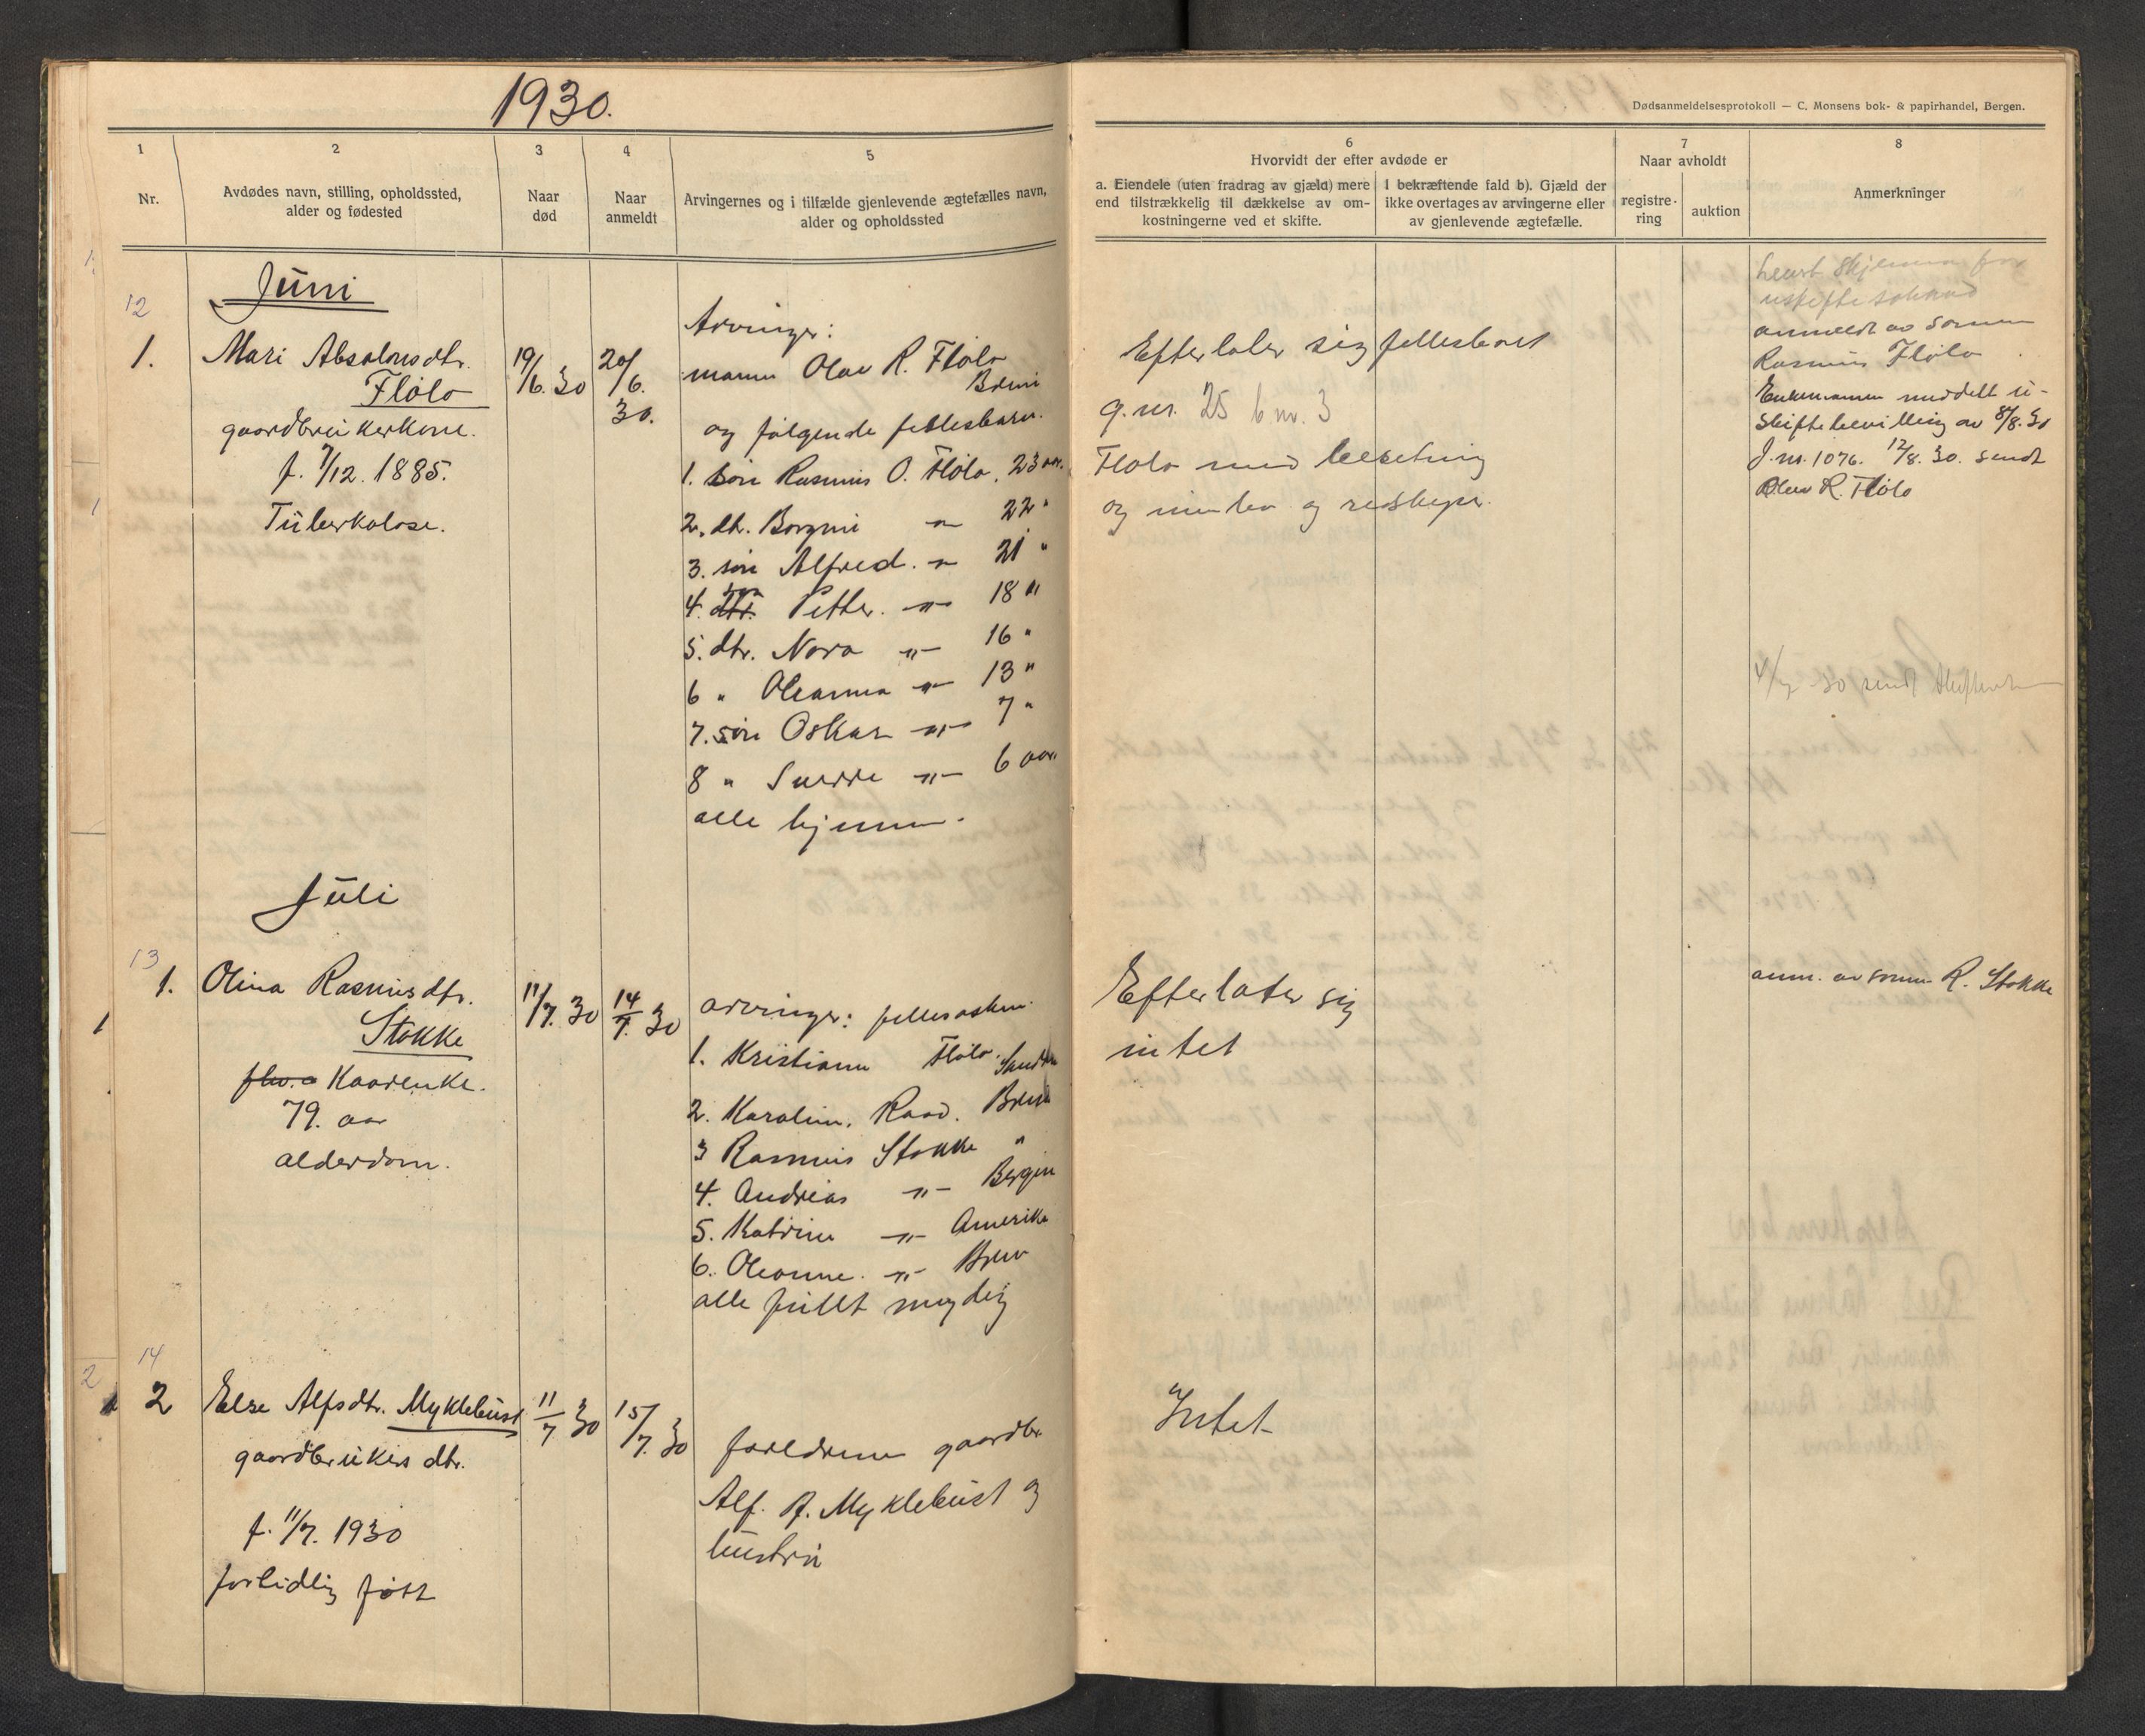 1930.
Dødsanmeldelsesprotokoll — C. Monsens bok- & papirhandel, Bergen.
1
2
3
4
5
6
7
8
Nr.
Avdødes navn, stilling, opholdssted,
alder og fødested
Naar
død
Naar
anmeldt
Arvingernes og i tilfælde gjenlevende ægtefælles navn,
alder og opholdssted
Hvorvidt der efter avdøde er
a. Eiendele (uten fradrag av gjæld) mere
end tilstrækkelig til dækkelse av om-
kostningerne ved et skifte.
I bekræftende fald b). Gjæld der
ikke overtages av arvingerne eller
av gjenlevende ægtefælle.
Naar avholdt
registre-
ring
auktion
Anmerkninger
Juni
12
1.
Mari Absalonsdtr.
Flölo
gaardbrukerkone.
f. 7/12. 1885.
Tuberkolose.
19/6. 30
20/6.
30.
Arvinger:
mann Olav R. Flölo
og følgende fellesbarn.
1. sön Rasmus O. Flölo. 23 aar.
2. dtr. Borgni 〃 22 "
3. sön Alfred. 〃 21 "
4. dtr. sön Petter. 〃 18 "
5. dtr. Nora 〃 16 "
6 " Oleanna 〃 13 "
7. sön Oskar 〃 7 "
8 " Sverre 〃 6 aar.
alle hjemme.
Efterlater sig fellesboet
g.nr. 25 b.nr. 3
Flölo med besetning
og innbo og redskaper.
uskifte
anmeldt av sönnen
Rasmus Flölo
Enkemannen meddelt u-
skiftebevilling av 8/8. 30
J.nr. 1076. 12/8. 30. sendt
Olav R. Flölo
30 sendt
Juli
13
1.
Olina Rasmusdtr.
Stokke
fhv. Kaarenke.
79. aar
alderdom.
11/7. 30
14/7. 30
arvinger:
1. Kristianne Flölo.
2. Karoline. Raad.
3 Rasmus Stokke "
4. Andreas 〃 Bergen
5. Katrine 〃 Amerika
6. Oleanne. 〃
alle fullt myndig
Efterlater sig
intet
anm. av sönnen R. Stokke
14
2
Else Alfsdtr. Myklebust
gaardbrukers dtr.
f. 11/7. 1930
fortidlig fött
11/7 30
15/7. 30
foreldrene gaardbr.
Alf. A. Myklebust og
hustru
Intet